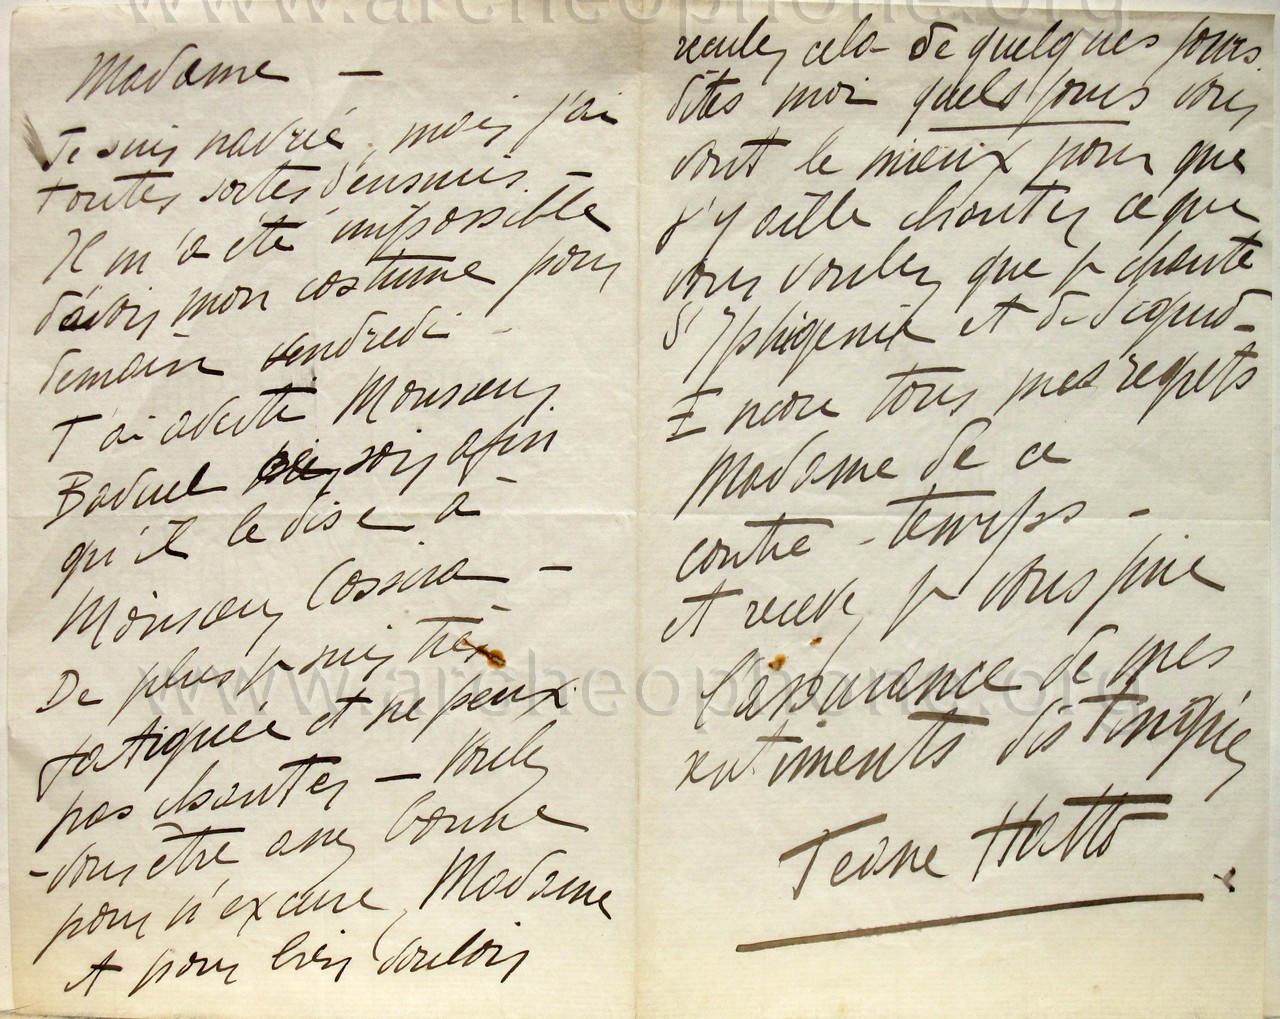 www.archeophone.org
Madame —
Je suis navrée, mais j'ai
toutes sortes d'ennuis –
Il m'a été impossible
d'avoir mon costume pour
demain vendredi –
J'ai averti Monsieur
Baduel hier soir afin
qu'il le dise à
Monsieur Cossira –
De plus je suis très
fatiguée et ne peux
pas chanter — Voulez
-vous être assez bonne
pour m'excuser, Madame
et pour bien vouloir
reculer cela de quelques jours.
dites moi quels jours vous
vont le mieux pour que
j'y aille chanter ce que
vous voulez que je chante
d'Iphigénie et de Sigurd –
Encore tous mes regrets
Madame de ce
contre-temps –
et recevez je vous prie
l'assurance de mes
sentiments distingués
Jeane Hatto
www.archeophone.org